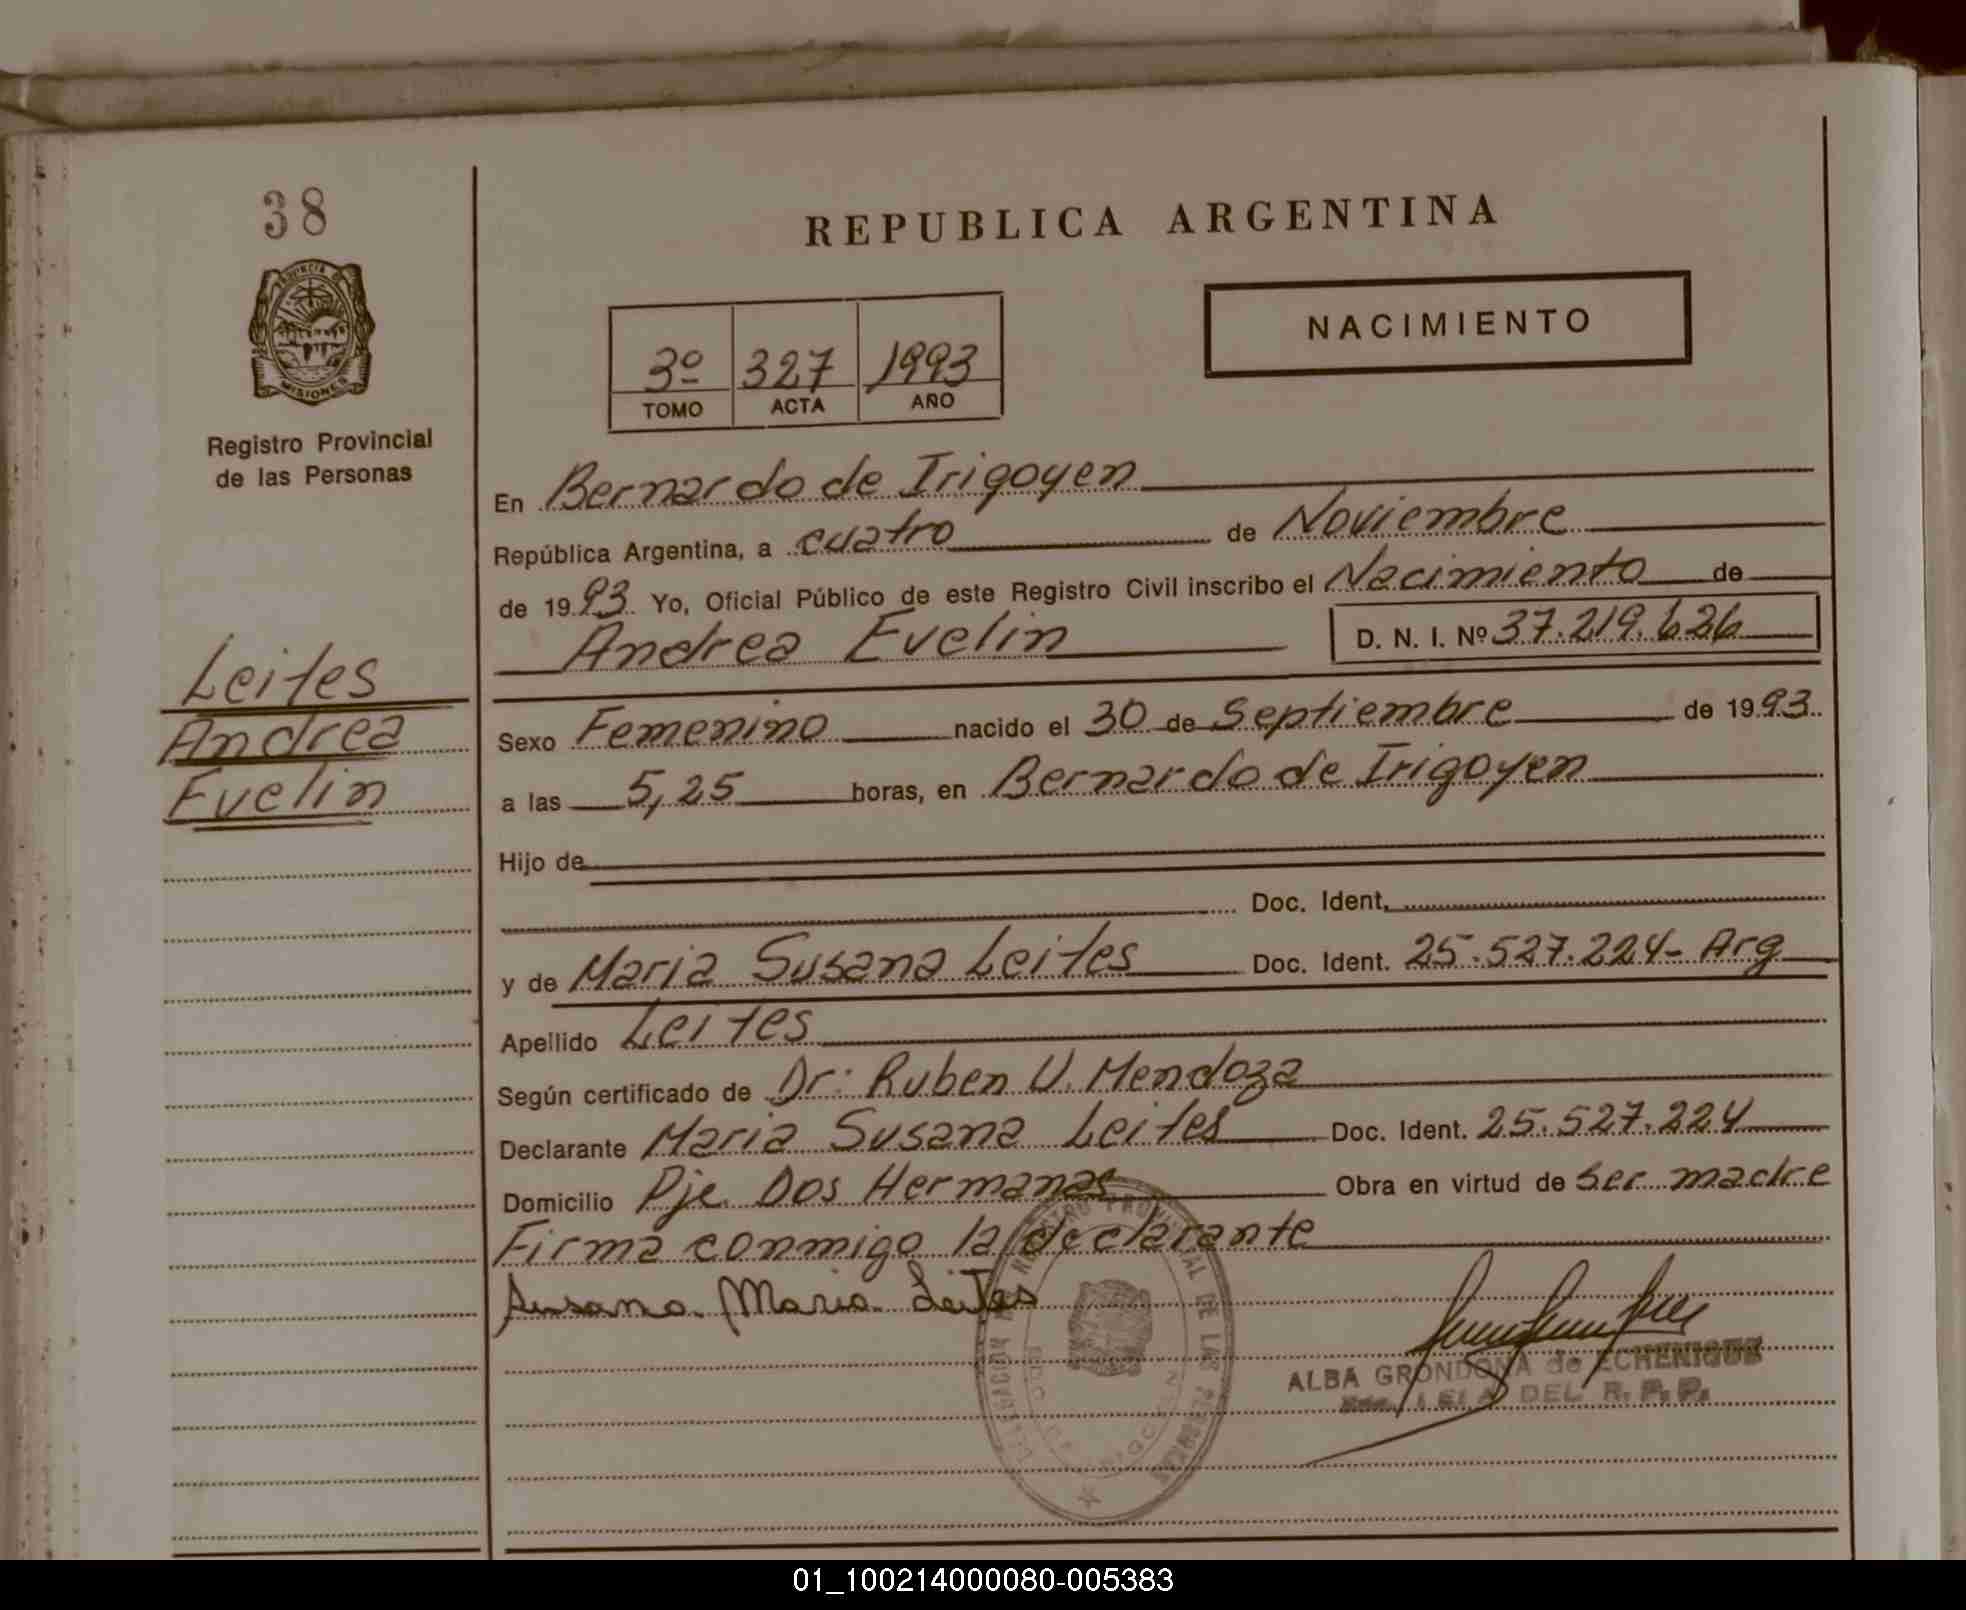 38
REPUBLICA ARGENTINA
PROVINCIA DE
MISIONES
NACIMIENTO
3º 327 1993
TOMO ACTA AÑO
Registro Provincial
de las Personas
En Bernardo de Irigoyen
República Argentina, a cuatro de Noviembre
de 1993 Yo, Oficial Público de este Registro Civil inscribo el Nacimiento de
Andrea Evelin D. N. I. Nº 37.219.626
Leites
Andrea
Evelin
Sexo Femenino nacido el 30 de Septiembre de 1993
a las 5,25 horas, en Bernardo de Irigoyen
Hijo de
Doc. Ident.
y de Maria Susana Leites Doc. Ident. 25.527.224- Arg
Apellido Leites
Según certificado de Dr: Ruben U. Mendoza
Declarante Maria Susana Leites Doc. Ident. 25.527.224
Domicilio Pje Dos Hermanas Obra en virtud de Ser madre
Firma conmigo la declarante
Susana Maria Leites
REGISTRO PROVINCIAL DE LAS PERSONAS
ALBA GRONDONA de ECHENIQUE
DEL R. P. P.
01_100214000080-005383